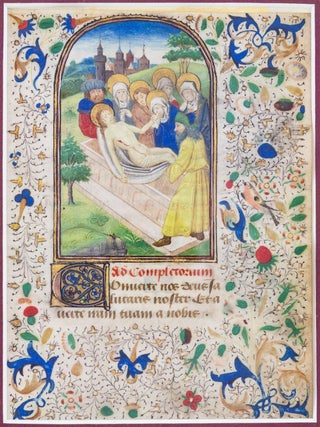 Ad Completorium
Conuerte nos deus sa
lutaris noster. Et a
uerte iram tuam a nobis.